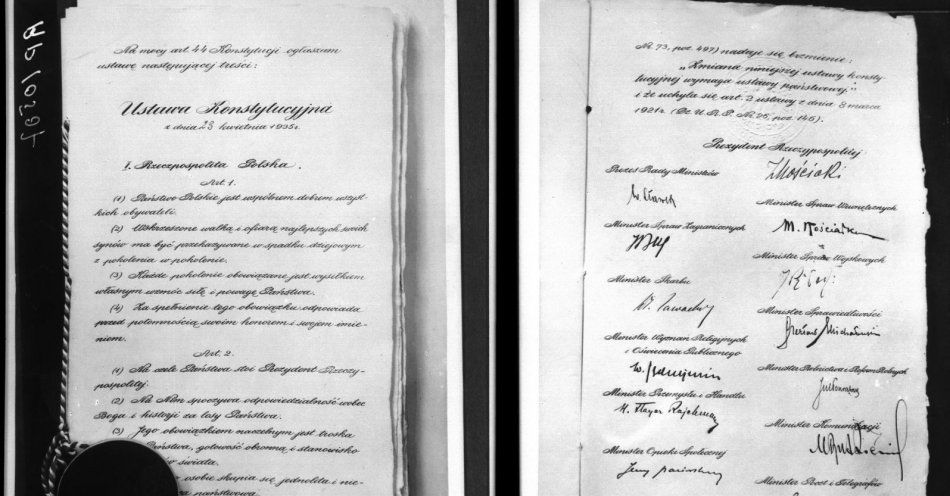 Na mocy art. 44 Konstytucji ogłaszam
ustawę następującej treści:
Ustawa Konstytucyjna
z dnia 23 kwietnia 1935 r.
I. Rzeczpospolita Polska.
Art. 1.
(1) Państwo Polskie jest wspólnem dobrem wszyst-
kich obywateli.
(2) Wskrzeszone walką i ofiarą najlepszych swoich
synów ma być przekazywane w spadku dziejowym
z pokolenia w pokolenie.
(3) Każde pokolenie obowiązane jest wysiłkiem
własnym wzmóc siłę i powagę Państwa.
(4) Za spełnienie tego obowiązku odpowiada
przed potomnością swoim honorem i swojem imie-
niem.
Art. 2.
(1) Na czele Państwa stoi Prezydent Rzeczy-
pospolitej.
(2) Na Nim spoczywa odpowiedzialność wobec
Boga i historji za losy Państwa.
(3) Jego obowiązkiem naczelnym jest troska
Państwa, gotowość obronną i stanowisko
świata.
osobie skupia się jednolita i nie-
państwowa.
Nr. 73, poz. 497) nadaje się brzmienie:
"Zmiana niniejszej ustawy konsty-
tucyjnej wymaga ustawy państwowej."
i że uchyla się art. 2 ustawy z dnia 8 marca
1921 r. (Dz. U. R. P. Nr. 25, poz. 145).
Prezydent Rzeczypospolitej
IMościcki
Prezes Rady Ministrów
W. Sławek
Minister Spraw Wewnętrznych
M. Kościałkowski
Minister Spraw Zagranicznych
Minister Spraw Wojskowych
Minister Skarbu
Minister Sprawiedliwości
Minister Wyznań Religijnych
i Oświecenia Publicznego
Minister Rolnictwa i Reform Rolnych
Minister Przemysłu i Handlu
H. Floyar Rajchman
Minister Komunikacji
Minister Opieki Społecznej
Minister Poczt i Telegrafów